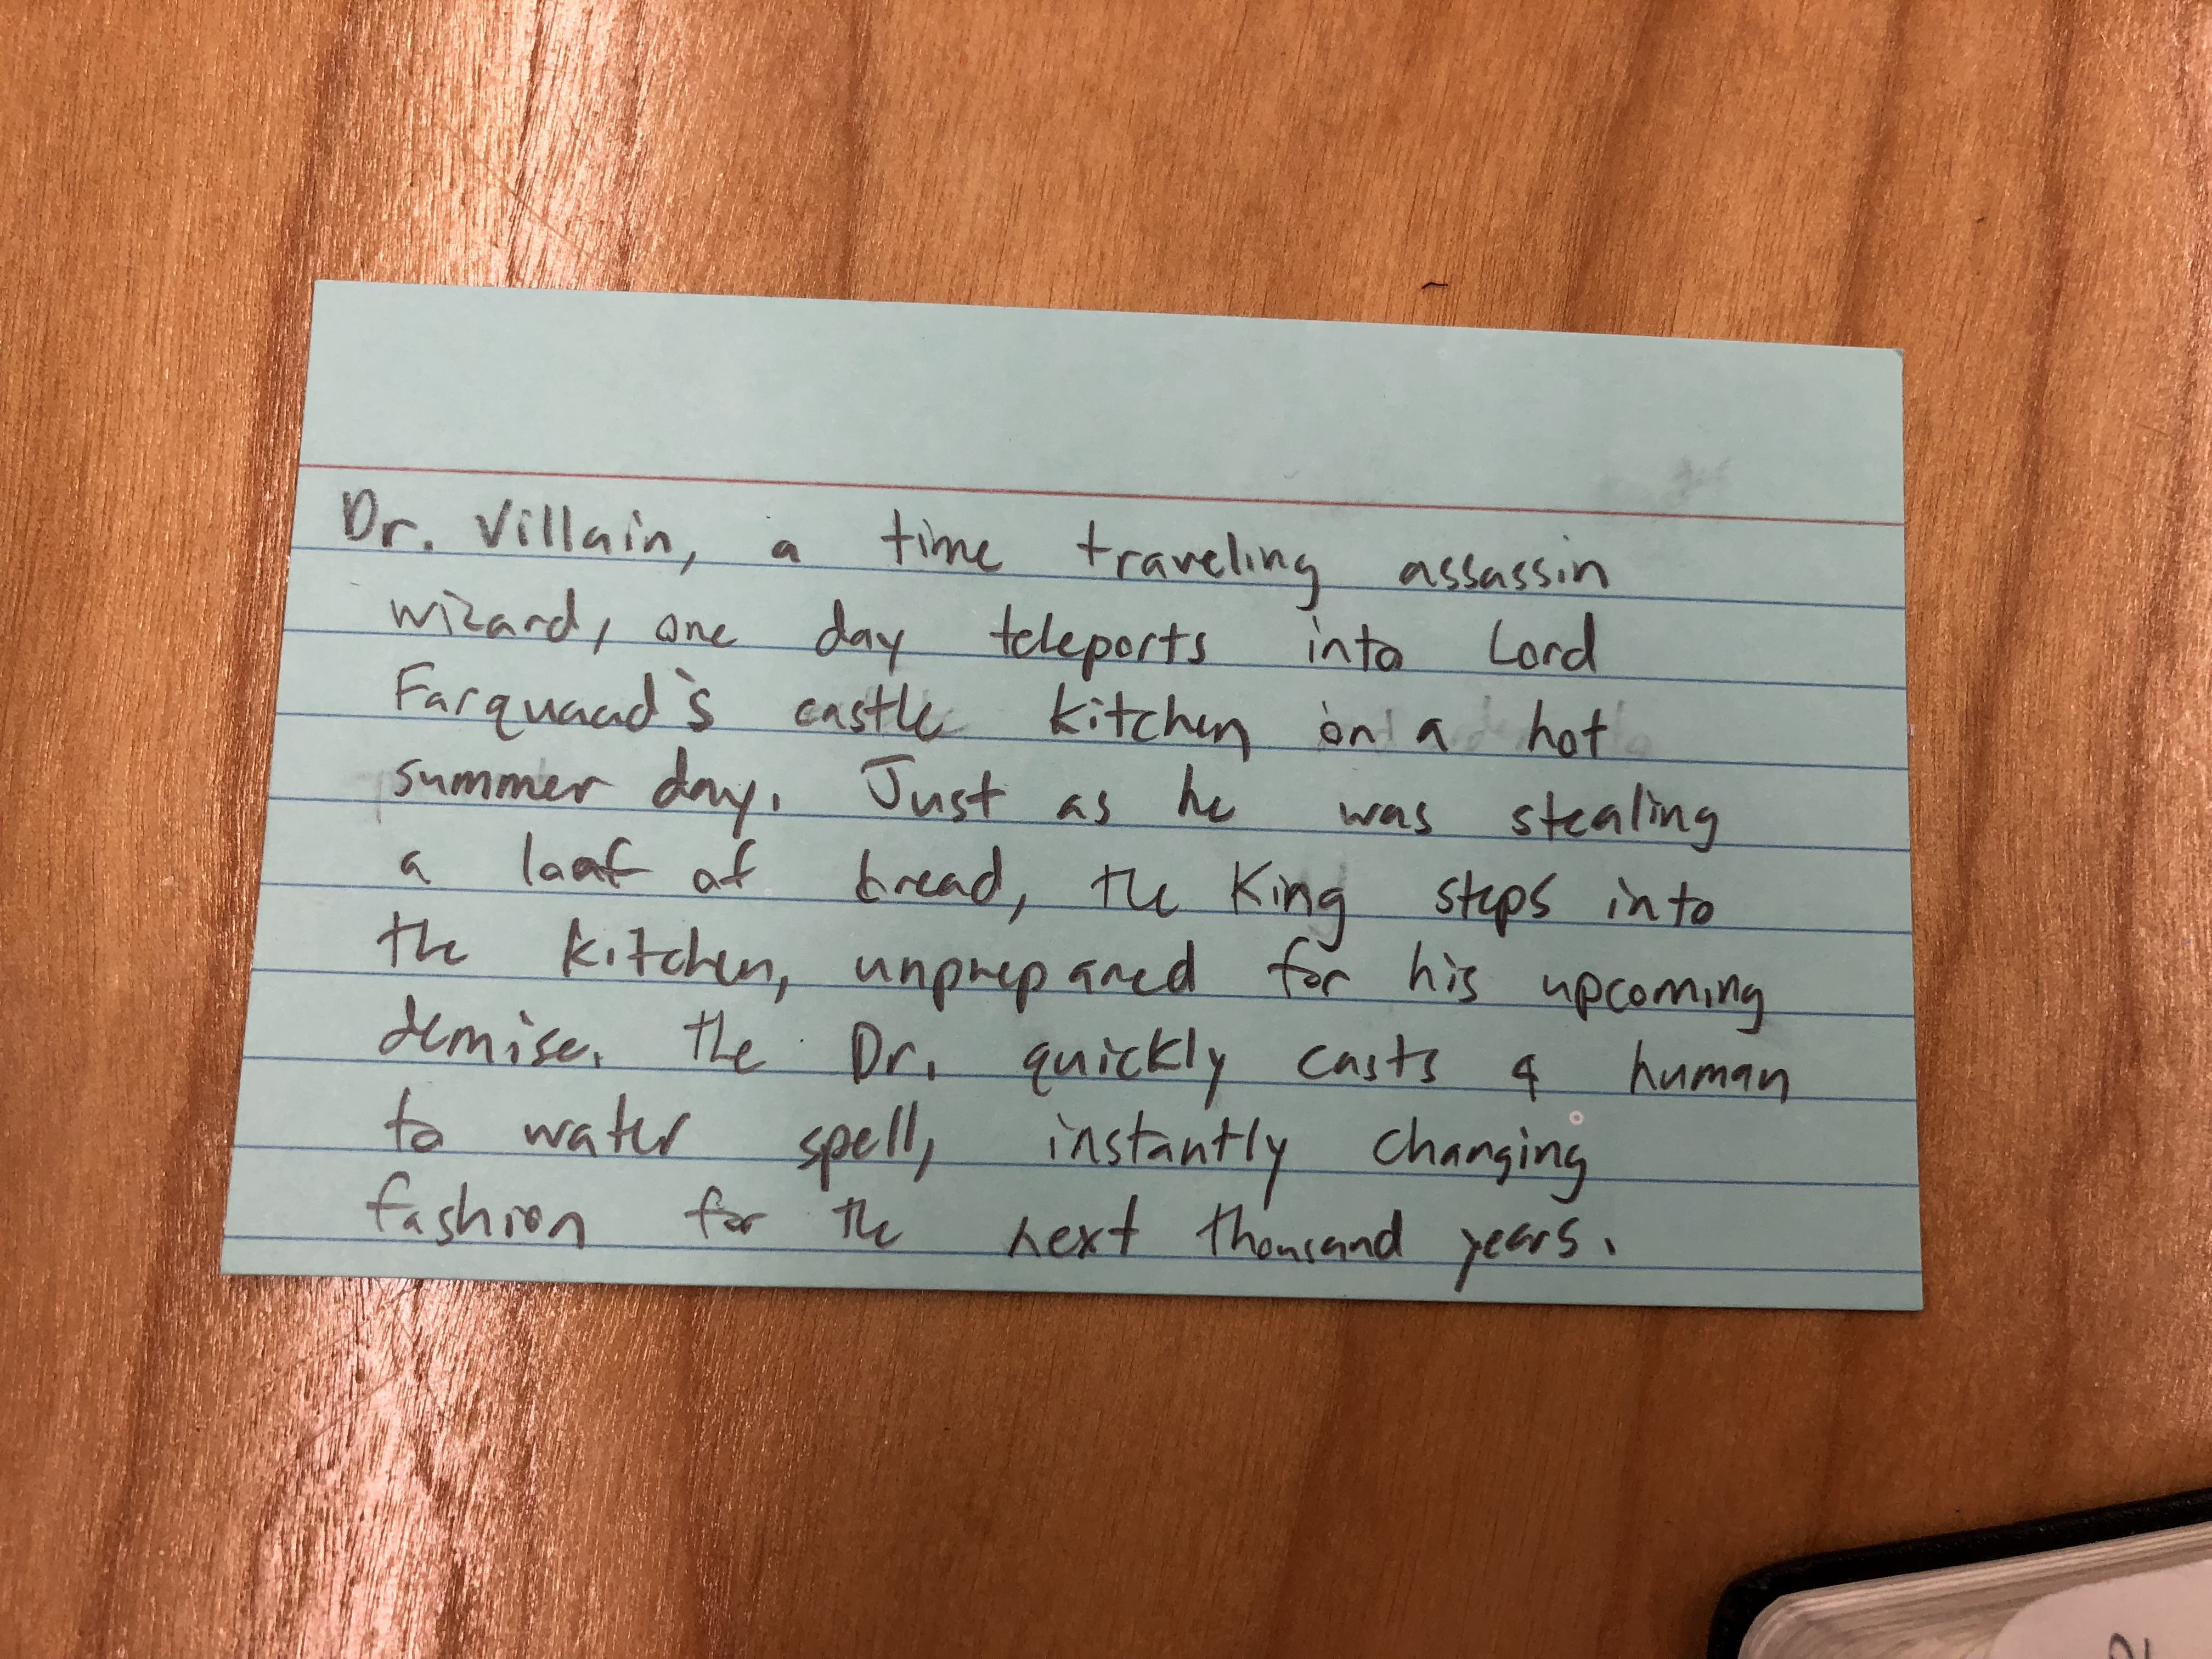 Dr. Villain, a time traveling assassin
wizard, one day teleports into Lord
Farquaad's castle kitchen on a hot
summer day. Just as he was stealing
a loaf of bread, the King steps into
the kitchen, unprepared for his upcoming
demise. The Dr. quickly casts a human
to water spell, instantly changing
fashion for the next thousand years.
2